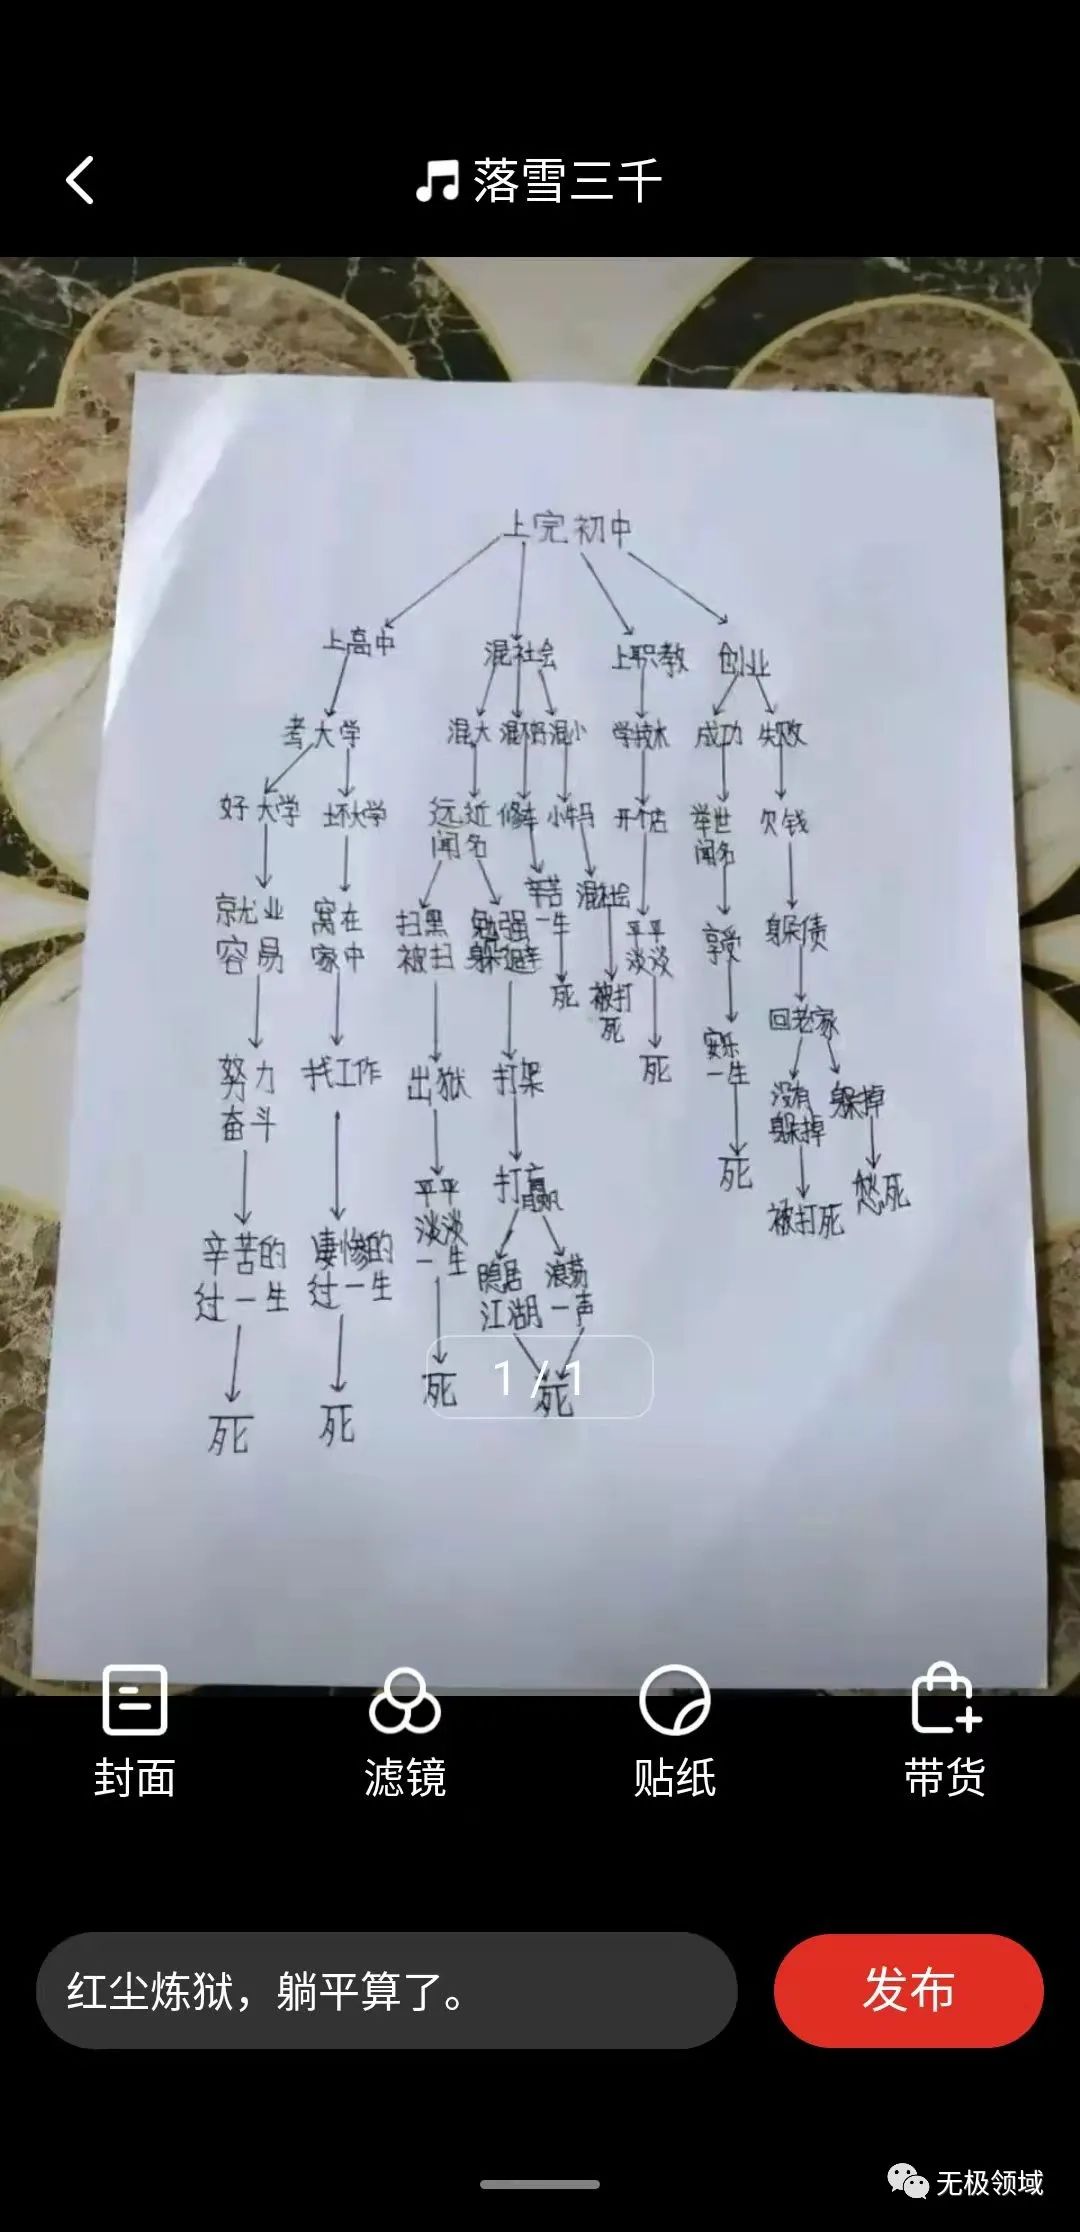 落雪三千
上完初中
上高中 混社会 上职教 创业
考大学 混大 混不好 混小 学技术 成功 失败
好大学 坏大学 远近 修车 小牛马 开个店 举世 欠钱
闻名 闻名
辛苦 混社会
就业 窝在 扫黑 勉强 一生 平平 享受 躲债
容易 家中 被扫 躲避 淡淡
死 被打
死
回老家
努力 找工作 出狱 打架 死 安乐 没有 躲掉
奋斗 一生 躲掉
平平 打赢 死 被打死 愁死
淡淡
一生
辛苦的 凄惨的 隐居 浪荡
过一生 过一生 江湖 一声
死 死
1 / 1
死 死
封面 滤镜 贴纸 带货
红尘炼狱，躺平算了。
发布
无极领域